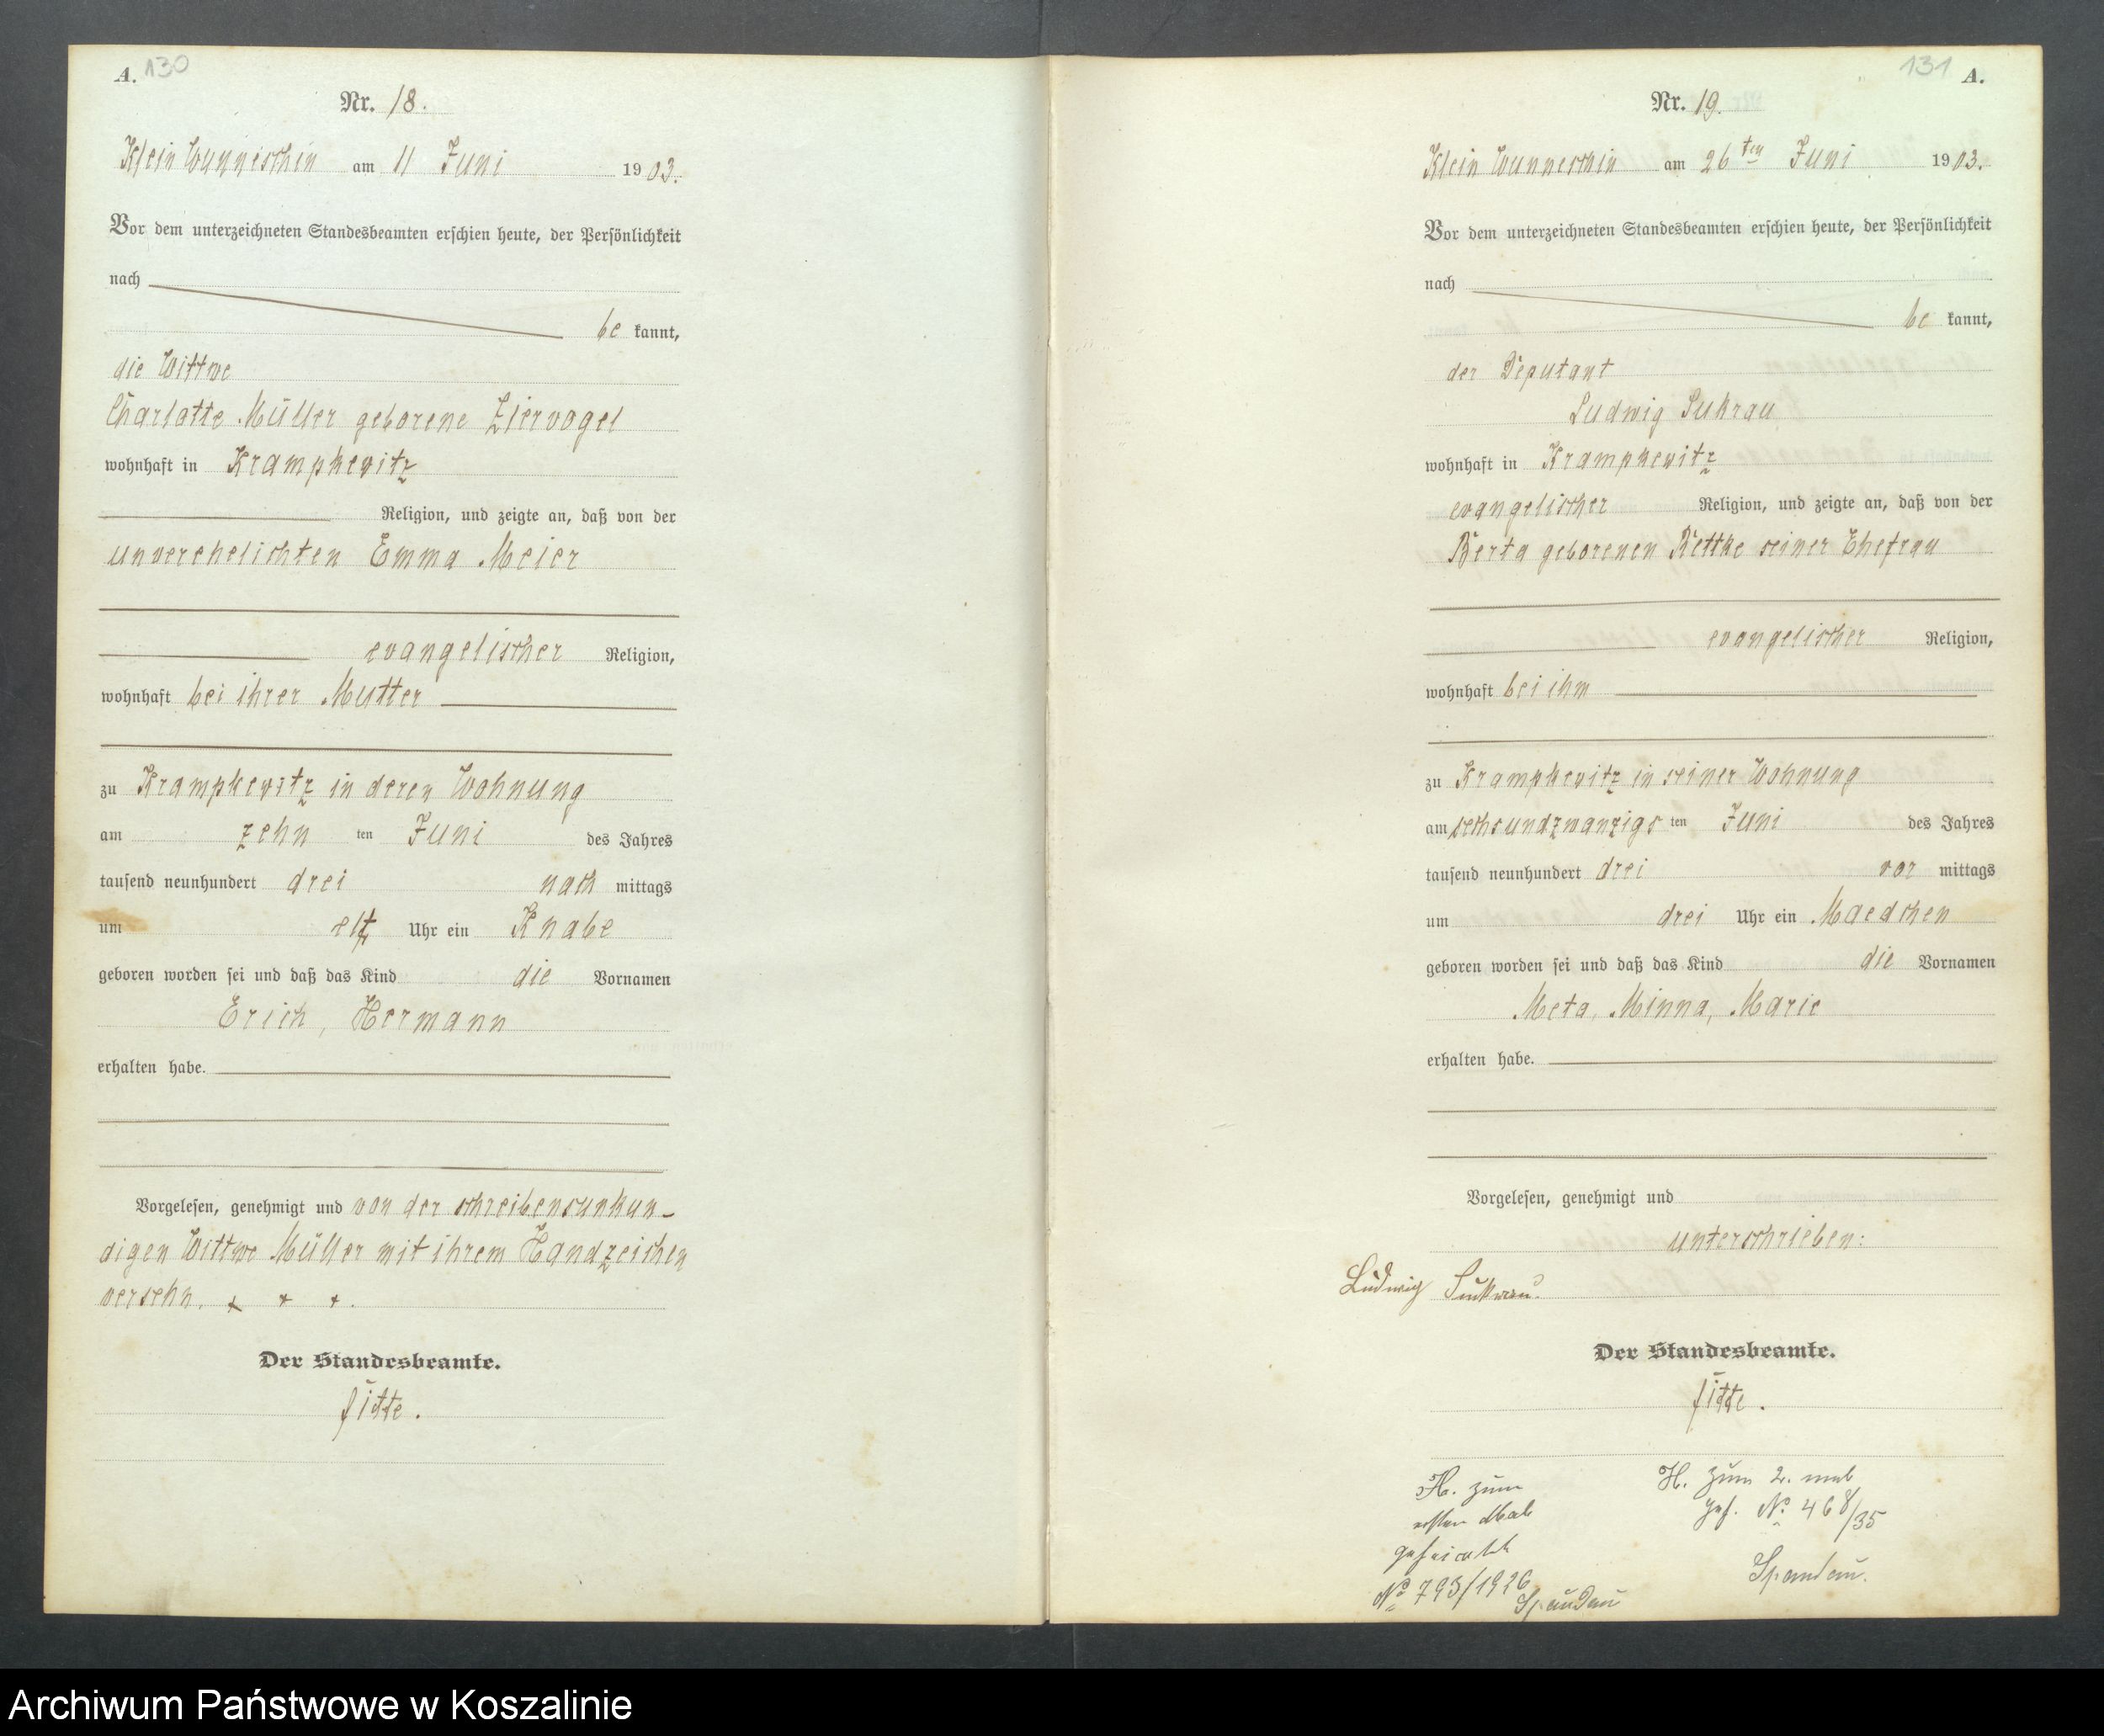 A. 130
Nr. 18.
Klein Wunneschin am 11 Juni 1903.
Vor dem unterzeichneten Standesbeamten erschien heute, der Persönlichkeit
nach
be kannt,
die Wittwe
Charlotte Müller geborene Ziervogel
wohnhaft in Krampkewitz
Religion, und zeigte an, daß von der
unverehelichten Emma Meier
evangelischer Religion,
wohnhaft bei ihrer Mutter
zu Krampkewitz in deren Wohnung
am zehn ten Juni des Jahres
tausend neunhundert drei nach mittags
um elf Uhr ein Knabe
geboren worden sei und daß das Kind die Vornamen
Erich, Hermann
erhalten habe.
Vorgelesen, genehmigt und von der schreibensunkun-
digen Wittwe Müller mit ihrem Handzeichen
versehn. + + +.
Der Standesbeamte.
fitte.
131 A.
Nr. 19.
Klein Wunneschin am 26ten Juni 1903.
Vor dem unterzeichneten Standesbeamten erschien heute, der Persönlichkeit
nach
be kannt,
der Deputant
Ludwig Sukrau
wohnhaft in Krampkewitz
evangelischer Religion, und zeigte an, daß von der
Berta geborenen Rettke seiner Ehefrau
evangelischer Religion,
wohnhaft bei ihm
zu Krampkewitz in seiner Wohnung
am sechsundzwanzigs ten Juni des Jahres
tausend neunhundert drei vor mittags
um drei Uhr ein Maedchen
geboren worden sei und daß das Kind die Vornamen
Meta, Minna, Marie
erhalten habe.
Vorgelesen, genehmigt und
unterschrieben:
Ludwig Suckrau.
Der Standesbeamte.
fitte.
H. zum
ersten Mal
geheiratet
No 793/1926
Spandau
H. zum 2. mal
geh. No 468/35
Spandau.
Archiwum Państwowe w Koszalinie